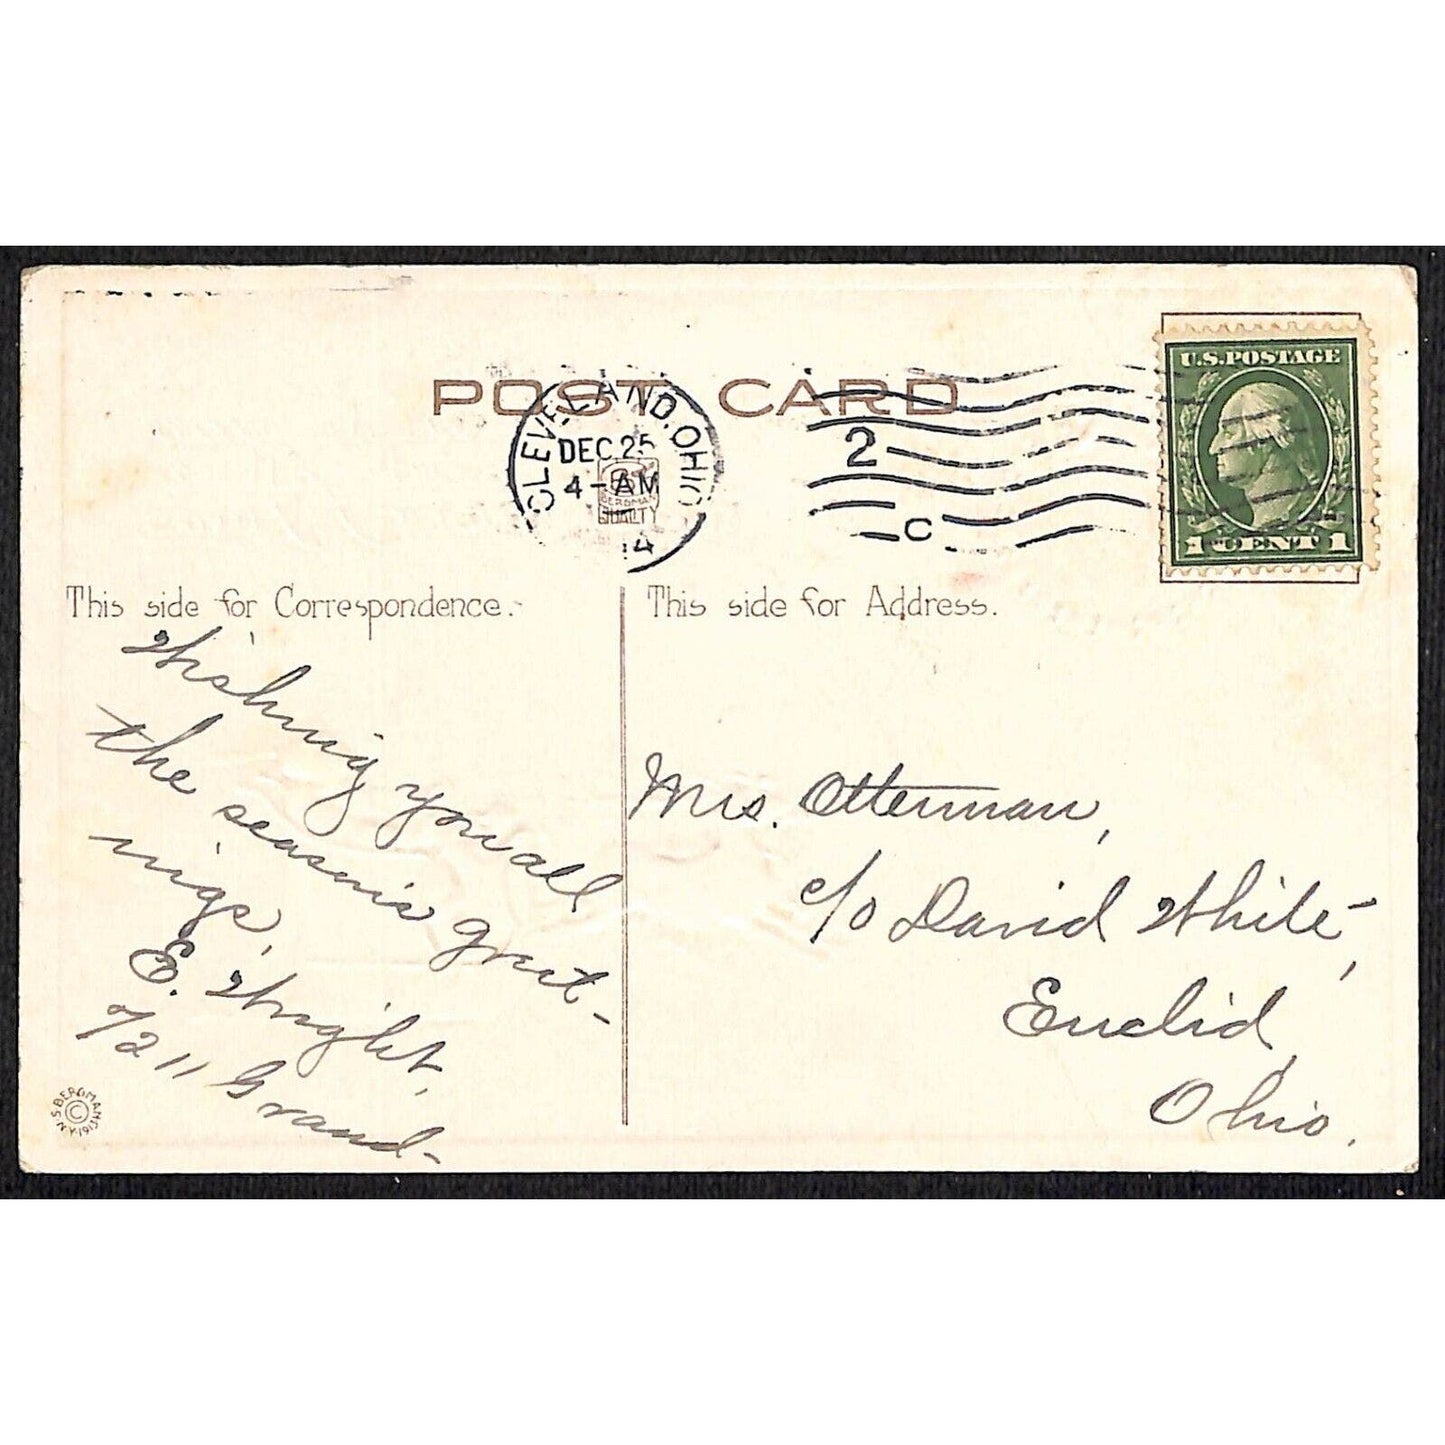 POST CARD
CLEVELAND, OHIO
DEC 25
4-AM
14
2
C
BERGMAN
QUALITY
U.S. POSTAGE
1 CENT 1
This side for Correspondence.
Wishing you all
the season's greet-
ings,
E. Wright,
7211 Grand-
This side for Address.
Mrs. Otterman,
c/o David White,
Euclid,
Ohio.
S. BERGMAN
© N.Y. 1913